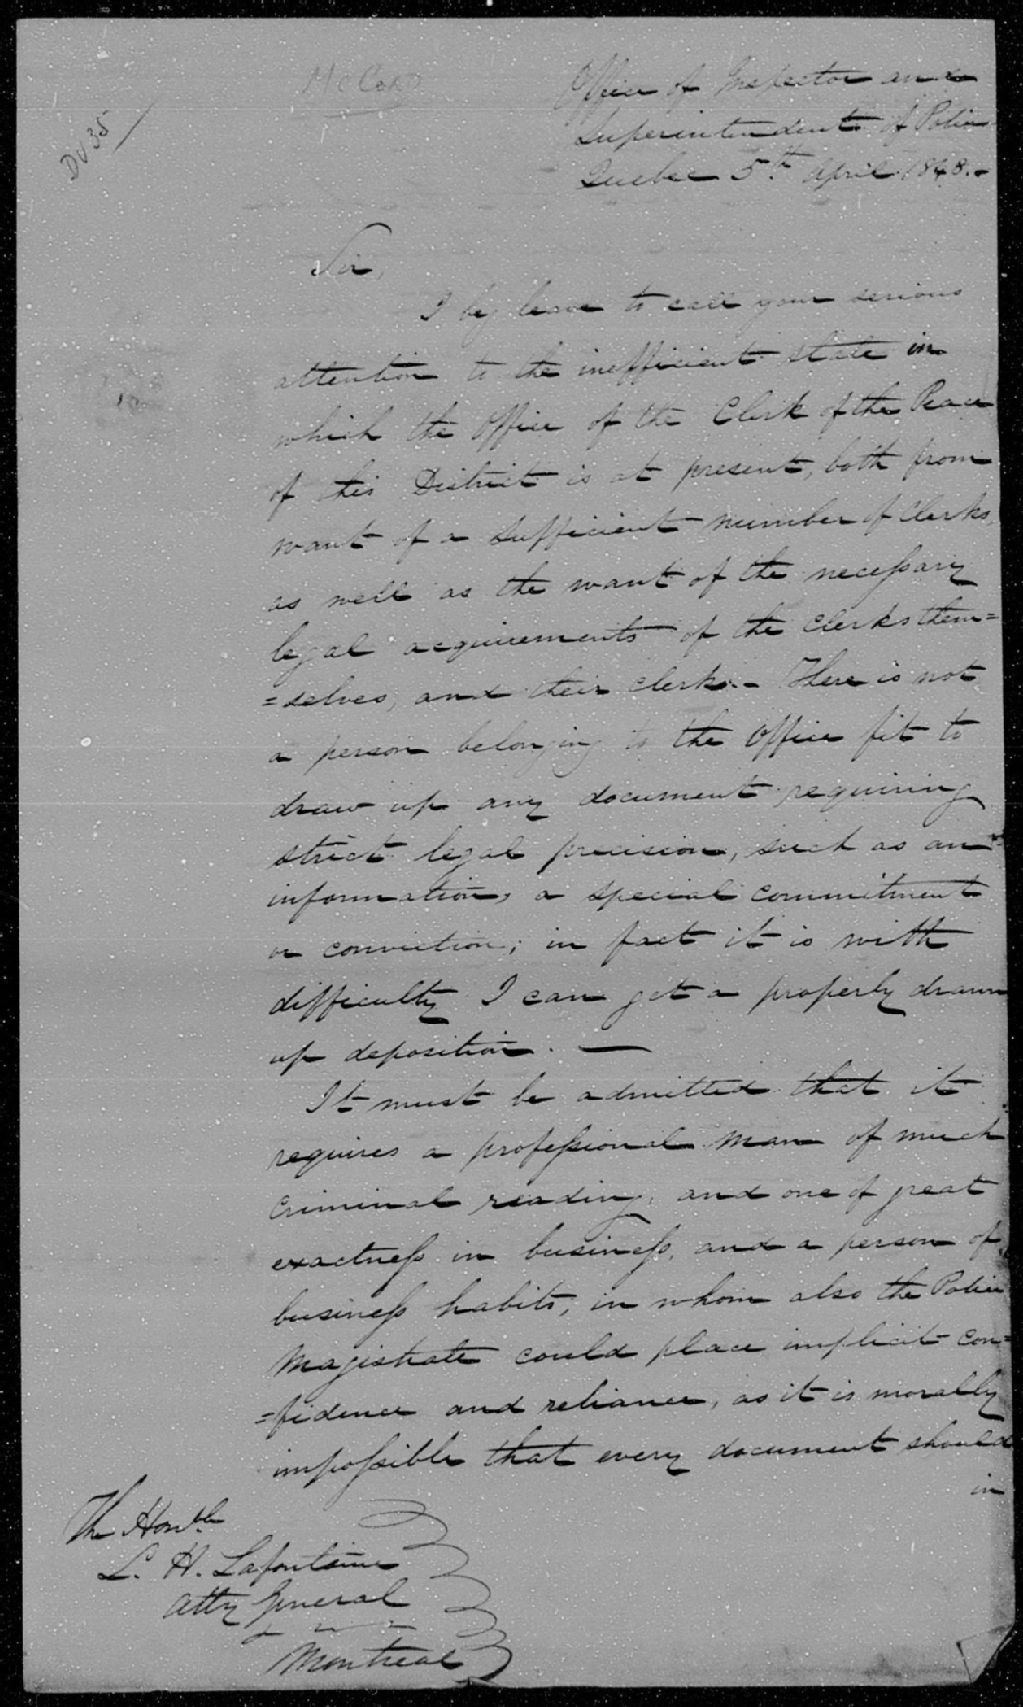 McCord
DV 35
Office of Inspector and
Superintendent of Police
Quebec 5th April 1848.-
Sir,
I beg leave to call your serious
attention to the inefficient state in
which the Office of the Clerk of the Peace
of this District is at present, both from
want of a sufficient number of Clerks,
as well as the want of the necessary
legal acquirements of the Clerks them=
=selves, and their clerks.- There is not
a person belonging to the Office fit to
draw up any document requiring
strict legal precision, such as an
information, a special commitment
or conviction; in fact it is with
difficulty I can get a properly drawn
up deposition. —
It must be admitted that it
requires a professional man of much
criminal reading, and one of great
exactness in business, and a person of
business habits, in whom also the Police
Magistrate could place implicit con=
=fidence and reliance, as it is morally
impossible that every document should
in
The Honble
L. H. Lafontaine
Atty General
Montreal